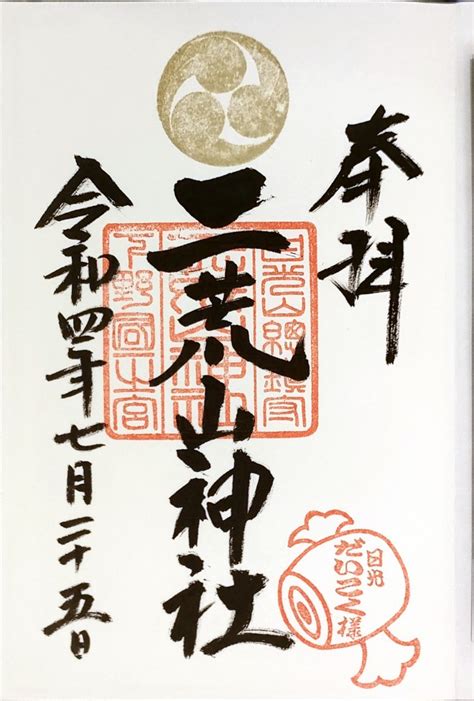 奉拝
日光山總鎮守
二荒山神社
下野國一之宮
令和四年七月二十五日
日光
だいこく様